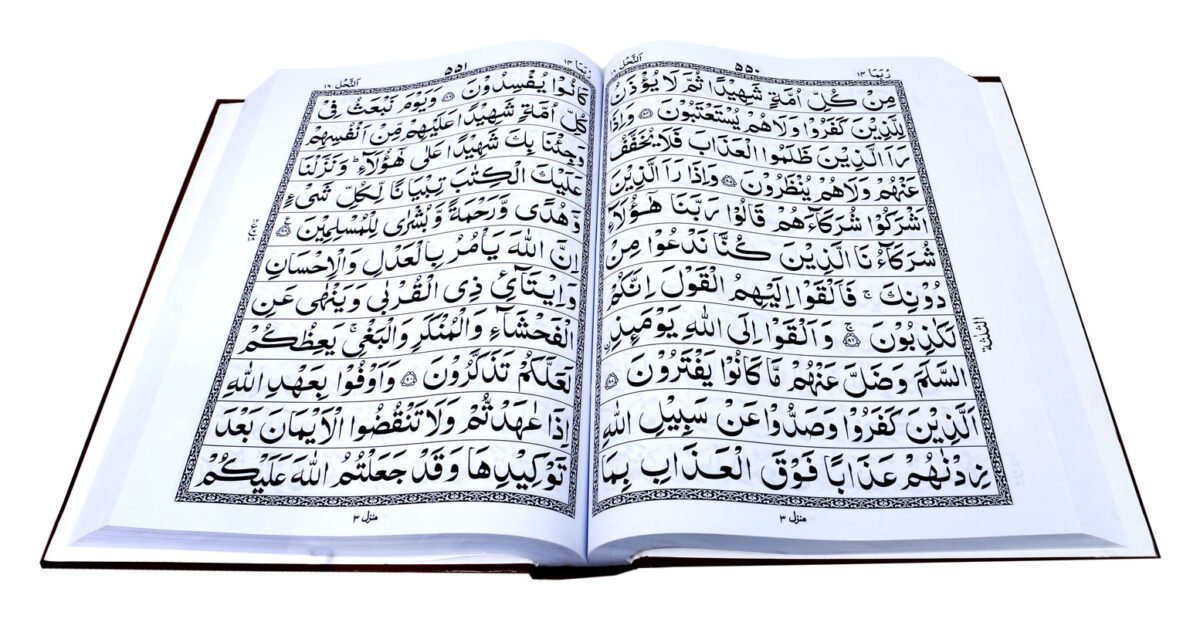 رُبَمَا ١٤ ٥٥٠ اَلنَّحْل
مِنْ كُلِّ اُمَّةٍ شَهِيْدًا ثُمَّ لَا يُؤْذَنُ
لِلَّذِيْنَ كَفَرُوْا وَلَا هُمْ يُسْتَعْتَبُوْنَ ۝ وَاِذَا
رَاَ الَّذِيْنَ ظَلَمُوا الْعَذَابَ فَلَا يُخَفَّفُ
عَنْهُمْ وَلَا هُمْ يُنْظَرُوْنَ ۝ وَاِذَا رَاَ الَّذِيْنَ
اَشْرَكُوْا شُرَكَآءَهُمْ قَالُوْا رَبَّنَا هٰٓؤُلَآءِ
شُرَكَآؤُنَا الَّذِيْنَ كُنَّا نَدْعُوْا مِنْ
دُوْنِكَ ۚ فَاَلْقَوْا اِلَيْهِمُ الْقَوْلَ اِنَّكُمْ
لَكٰذِبُوْنَ ۝ وَاَلْقَوْا اِلَى اللّٰهِ يَوْمَئِذِ
السَّلَمَ وَضَلَّ عَنْهُمْ مَّا كَانُوْا يَفْتَرُوْنَ ۝
اَلَّذِيْنَ كَفَرُوْا وَصَدُّوْا عَنْ سَبِيْلِ اللّٰهِ
زِدْنٰهُمْ عَذَابًا فَوْقَ الْعَذَابِ بِمَا
الثلثة
منزل ٣
رُبَمَا ١٤ ٥٥١ اَلنَّحْل ١٦
كَانُوْا يُفْسِدُوْنَ ۝ وَيَوْمَ نَبْعَثُ فِيْ
كُلِّ اُمَّةٍ شَهِيْدًا عَلَيْهِمْ مِّنْ اَنْفُسِهِمْ
وَجِئْنَا بِكَ شَهِيْدًا عَلٰى هٰٓؤُلَآءِ ؕ وَنَزَّلْنَا
عَلَيْكَ الْكِتٰبَ تِبْيَانًا لِّكُلِّ شَيْءٍ
وَّهُدًى وَّرَحْمَةً وَّبُشْرٰى لِلْمُسْلِمِيْنَ ۝
اِنَّ اللّٰهَ يَاْمُرُ بِالْعَدْلِ وَالْاِحْسَانِ
وَاِيْتَآئِ ذِى الْقُرْبٰى وَيَنْهٰى عَنِ
الْفَحْشَآءِ وَالْمُنْكَرِ وَالْبَغْيِ ۚ يَعِظُكُمْ
لَعَلَّكُمْ تَذَكَّرُوْنَ ۝ وَاَوْفُوْا بِعَهْدِ اللّٰهِ
اِذَا عٰهَدْتُّمْ وَلَا تَنْقُضُوا الْاَيْمَانَ بَعْدَ
تَوْكِيْدِهَا وَقَدْ جَعَلْتُمُ اللّٰهَ عَلَيْكُمْ
منزل ٣